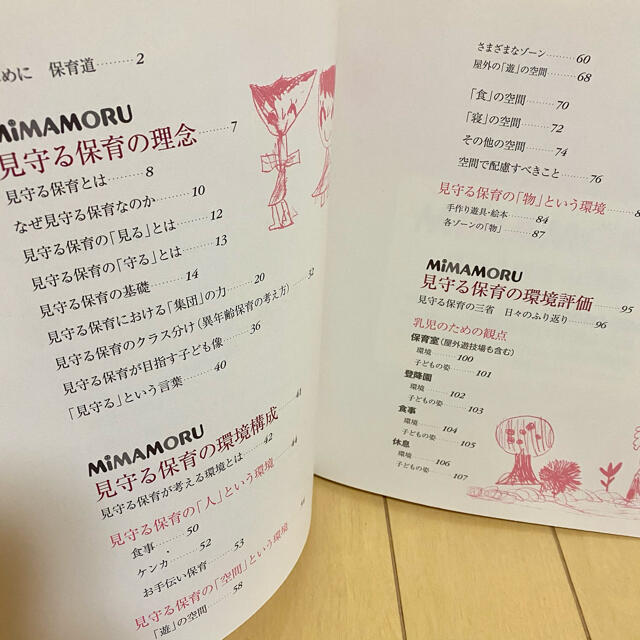 めに 保育道………2
MiMAMORU
見守る保育の理念……7
見守る保育とは……8
なぜ見守る保育なのか……10
見守る保育の「見る」とは……12
見守る保育の「守る」とは……13
見守る保育の基礎……14
見守る保育における「集団」の力……20
見守る保育のクラス分け(異年齢保育の考え方)……32
見守る保育が目指す子ども像……36
「見守る」という言葉……40
MiMAMORU
見守る保育の環境構成……41
見守る保育が考える環境とは……42
見守る保育の「人」という環境……44
食事……50
ケンカ……52
お手伝い保育……53
見守る保育の「空間」という環境
「遊」の空間……58
さまざまなゾーン………60
屋外の「遊」の空間……68
「食」の空間……70
「寝」の空間……72
その他の空間……74
空間で配慮すべきこと……76
見守る保育の「物」という環境……8
手作り遊具・絵本……84
各ゾーンの「物」……87
MiMAMORU
見守る保育の環境評価……95
見守る保育の三省 日々のふり返り……96
乳児のための観点
保育室(屋外遊技場も含む)
環境……100
子どもの姿……101
登降園
環境……102
子どもの姿……103
食事
環境……104
子どもの姿……105
休息
環境……106
子どもの姿……107